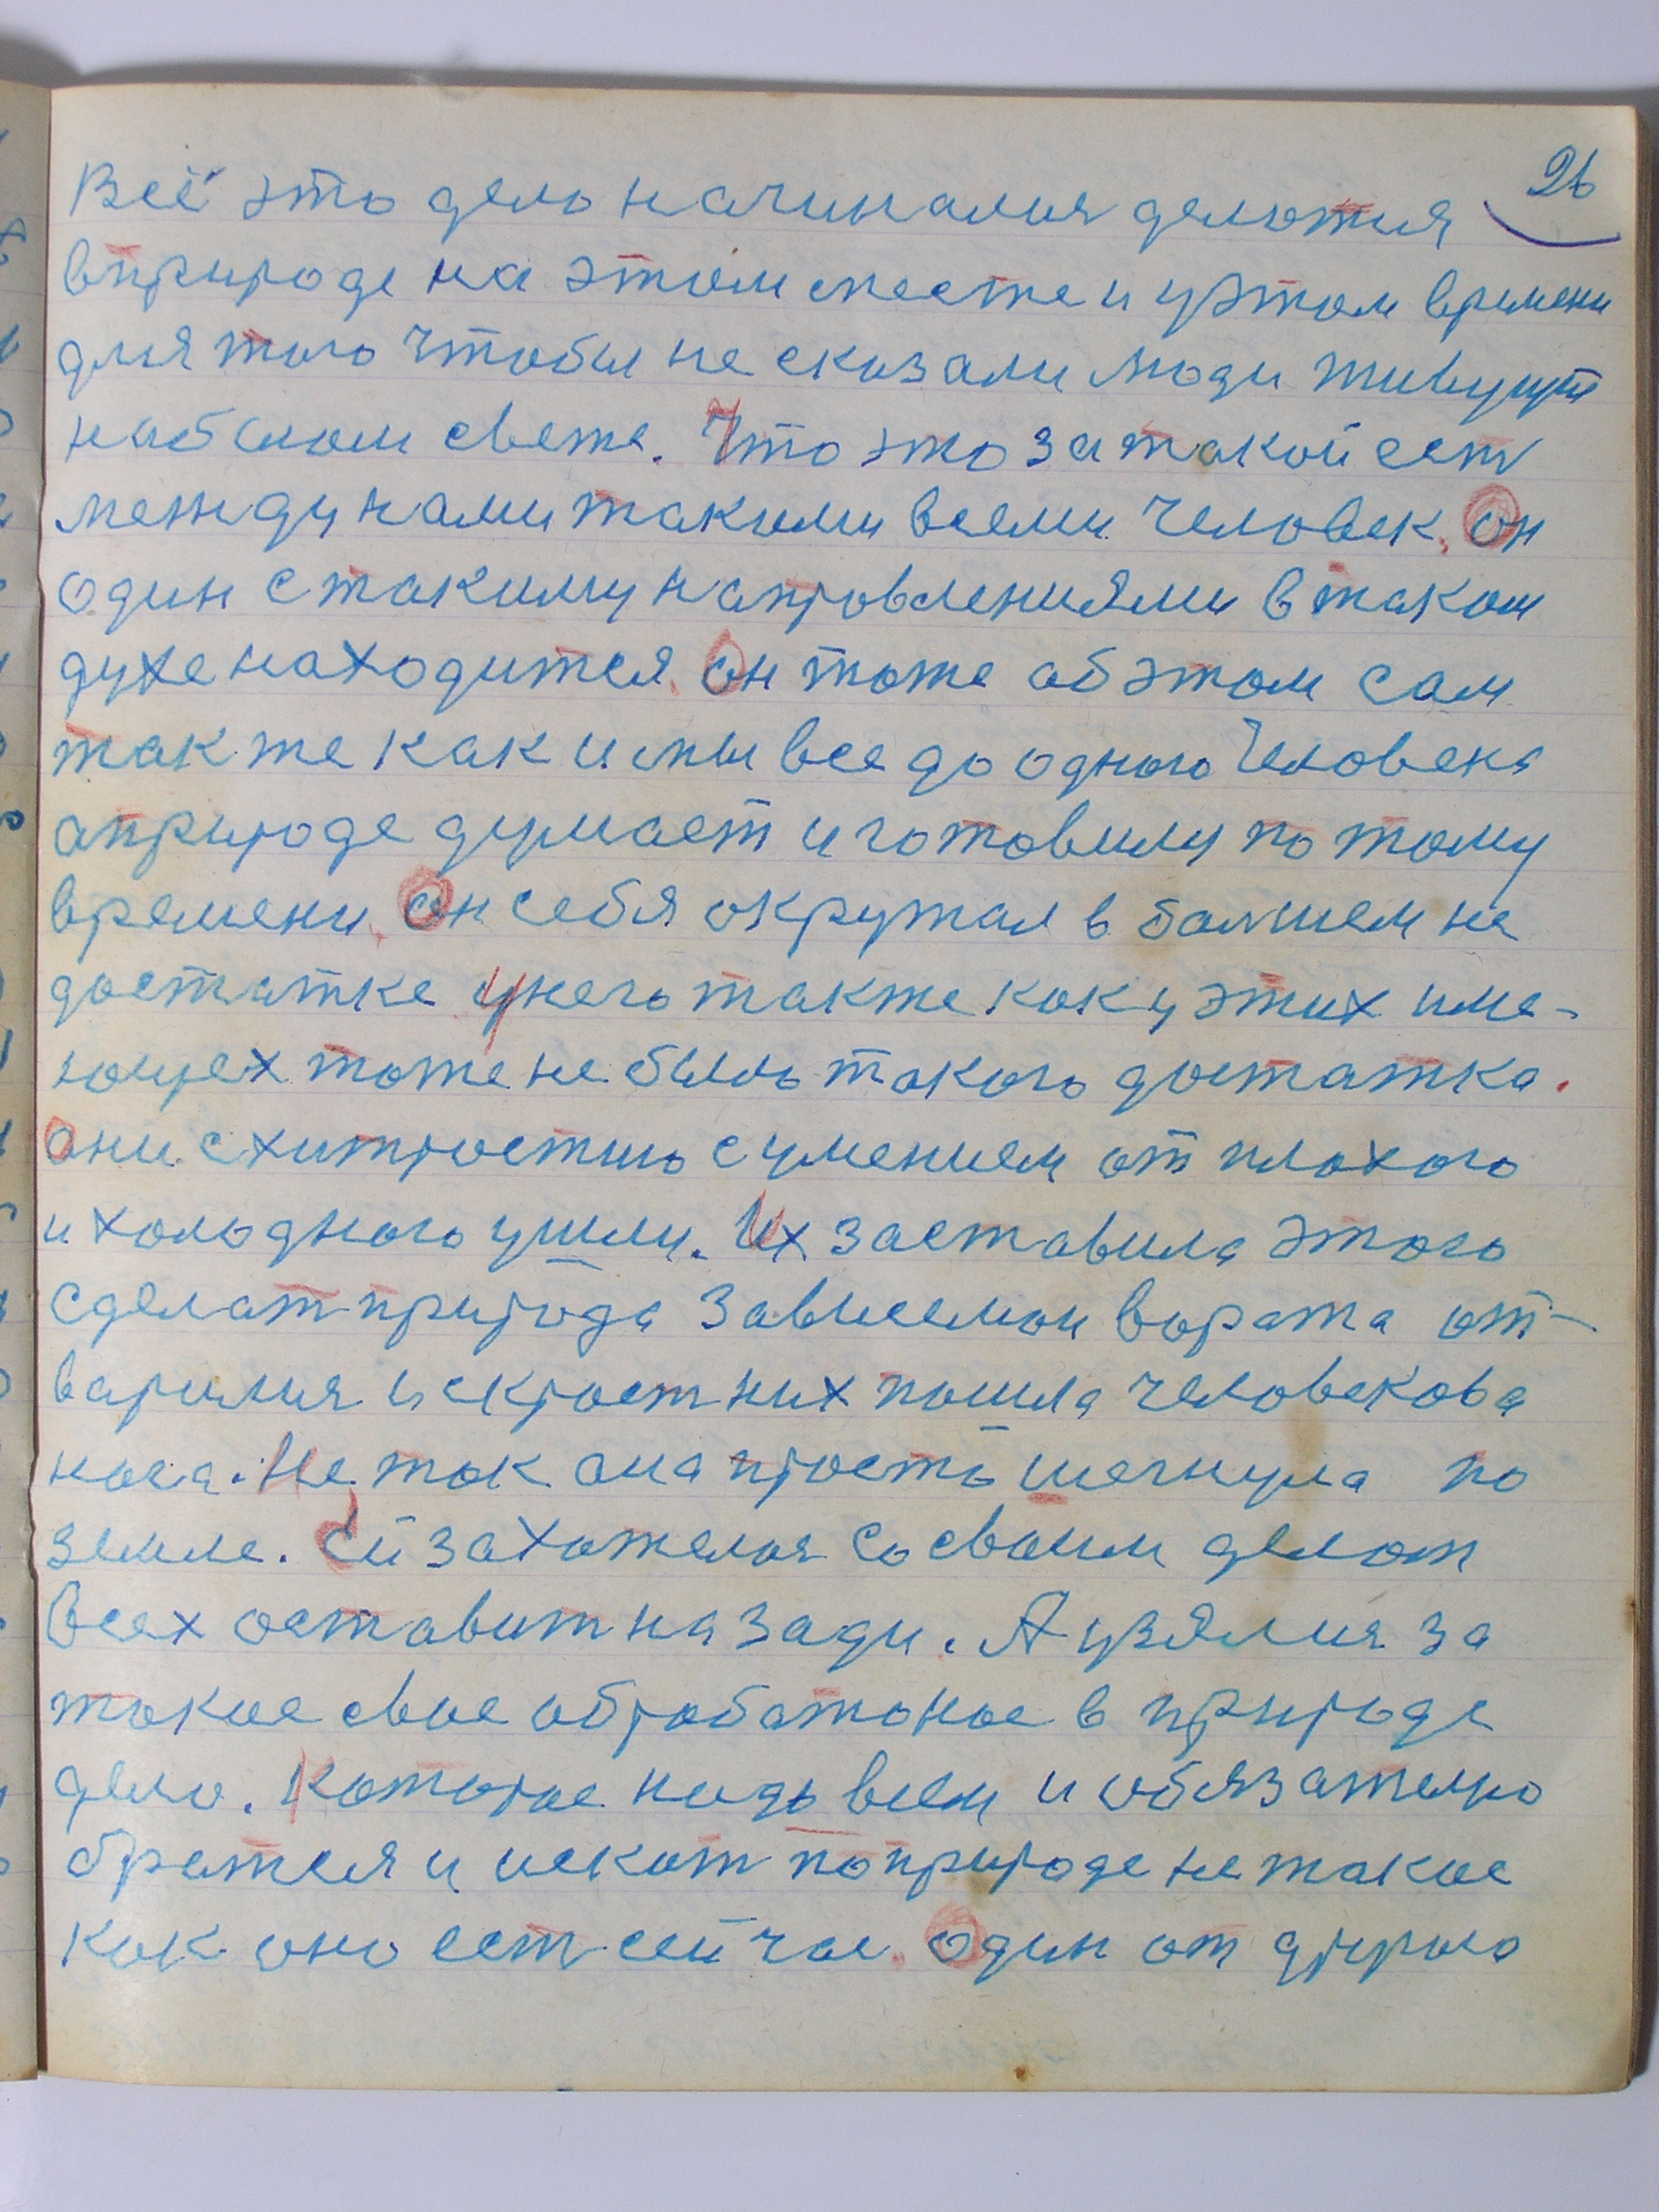 26
Всё это дело начиналися делотия
вприроде на этом месте и уэтом времени
для того чтобы не сказали люди живущи
набелом свете. Что это за такой ест
между нами такими всеми человек. Он
один стакими направлениями втаком
духе находится. Он тоже обэтом сам
так же как и мы все до одного человека
априроде думает и готовился по тому
времени. Он себя окружал в болшем не
достатке унего также как у этих име-
ющех тоже не было такого достатка.
Они схитростию сумением от плохого
и холодного ушли. Их заставила этого
сделат природа зависемои ворота от-
варился искрост них пошла человекова
нога. Не так она прость шегнула по
земле. Ей захотелося со своим делом
Всех оставит на зади. А узялися за
такое свое обработоное в природе
дело. Которое надо всем и обязателно
братся и искат поприроде не такое
как оно ест сейчас. Один от другого